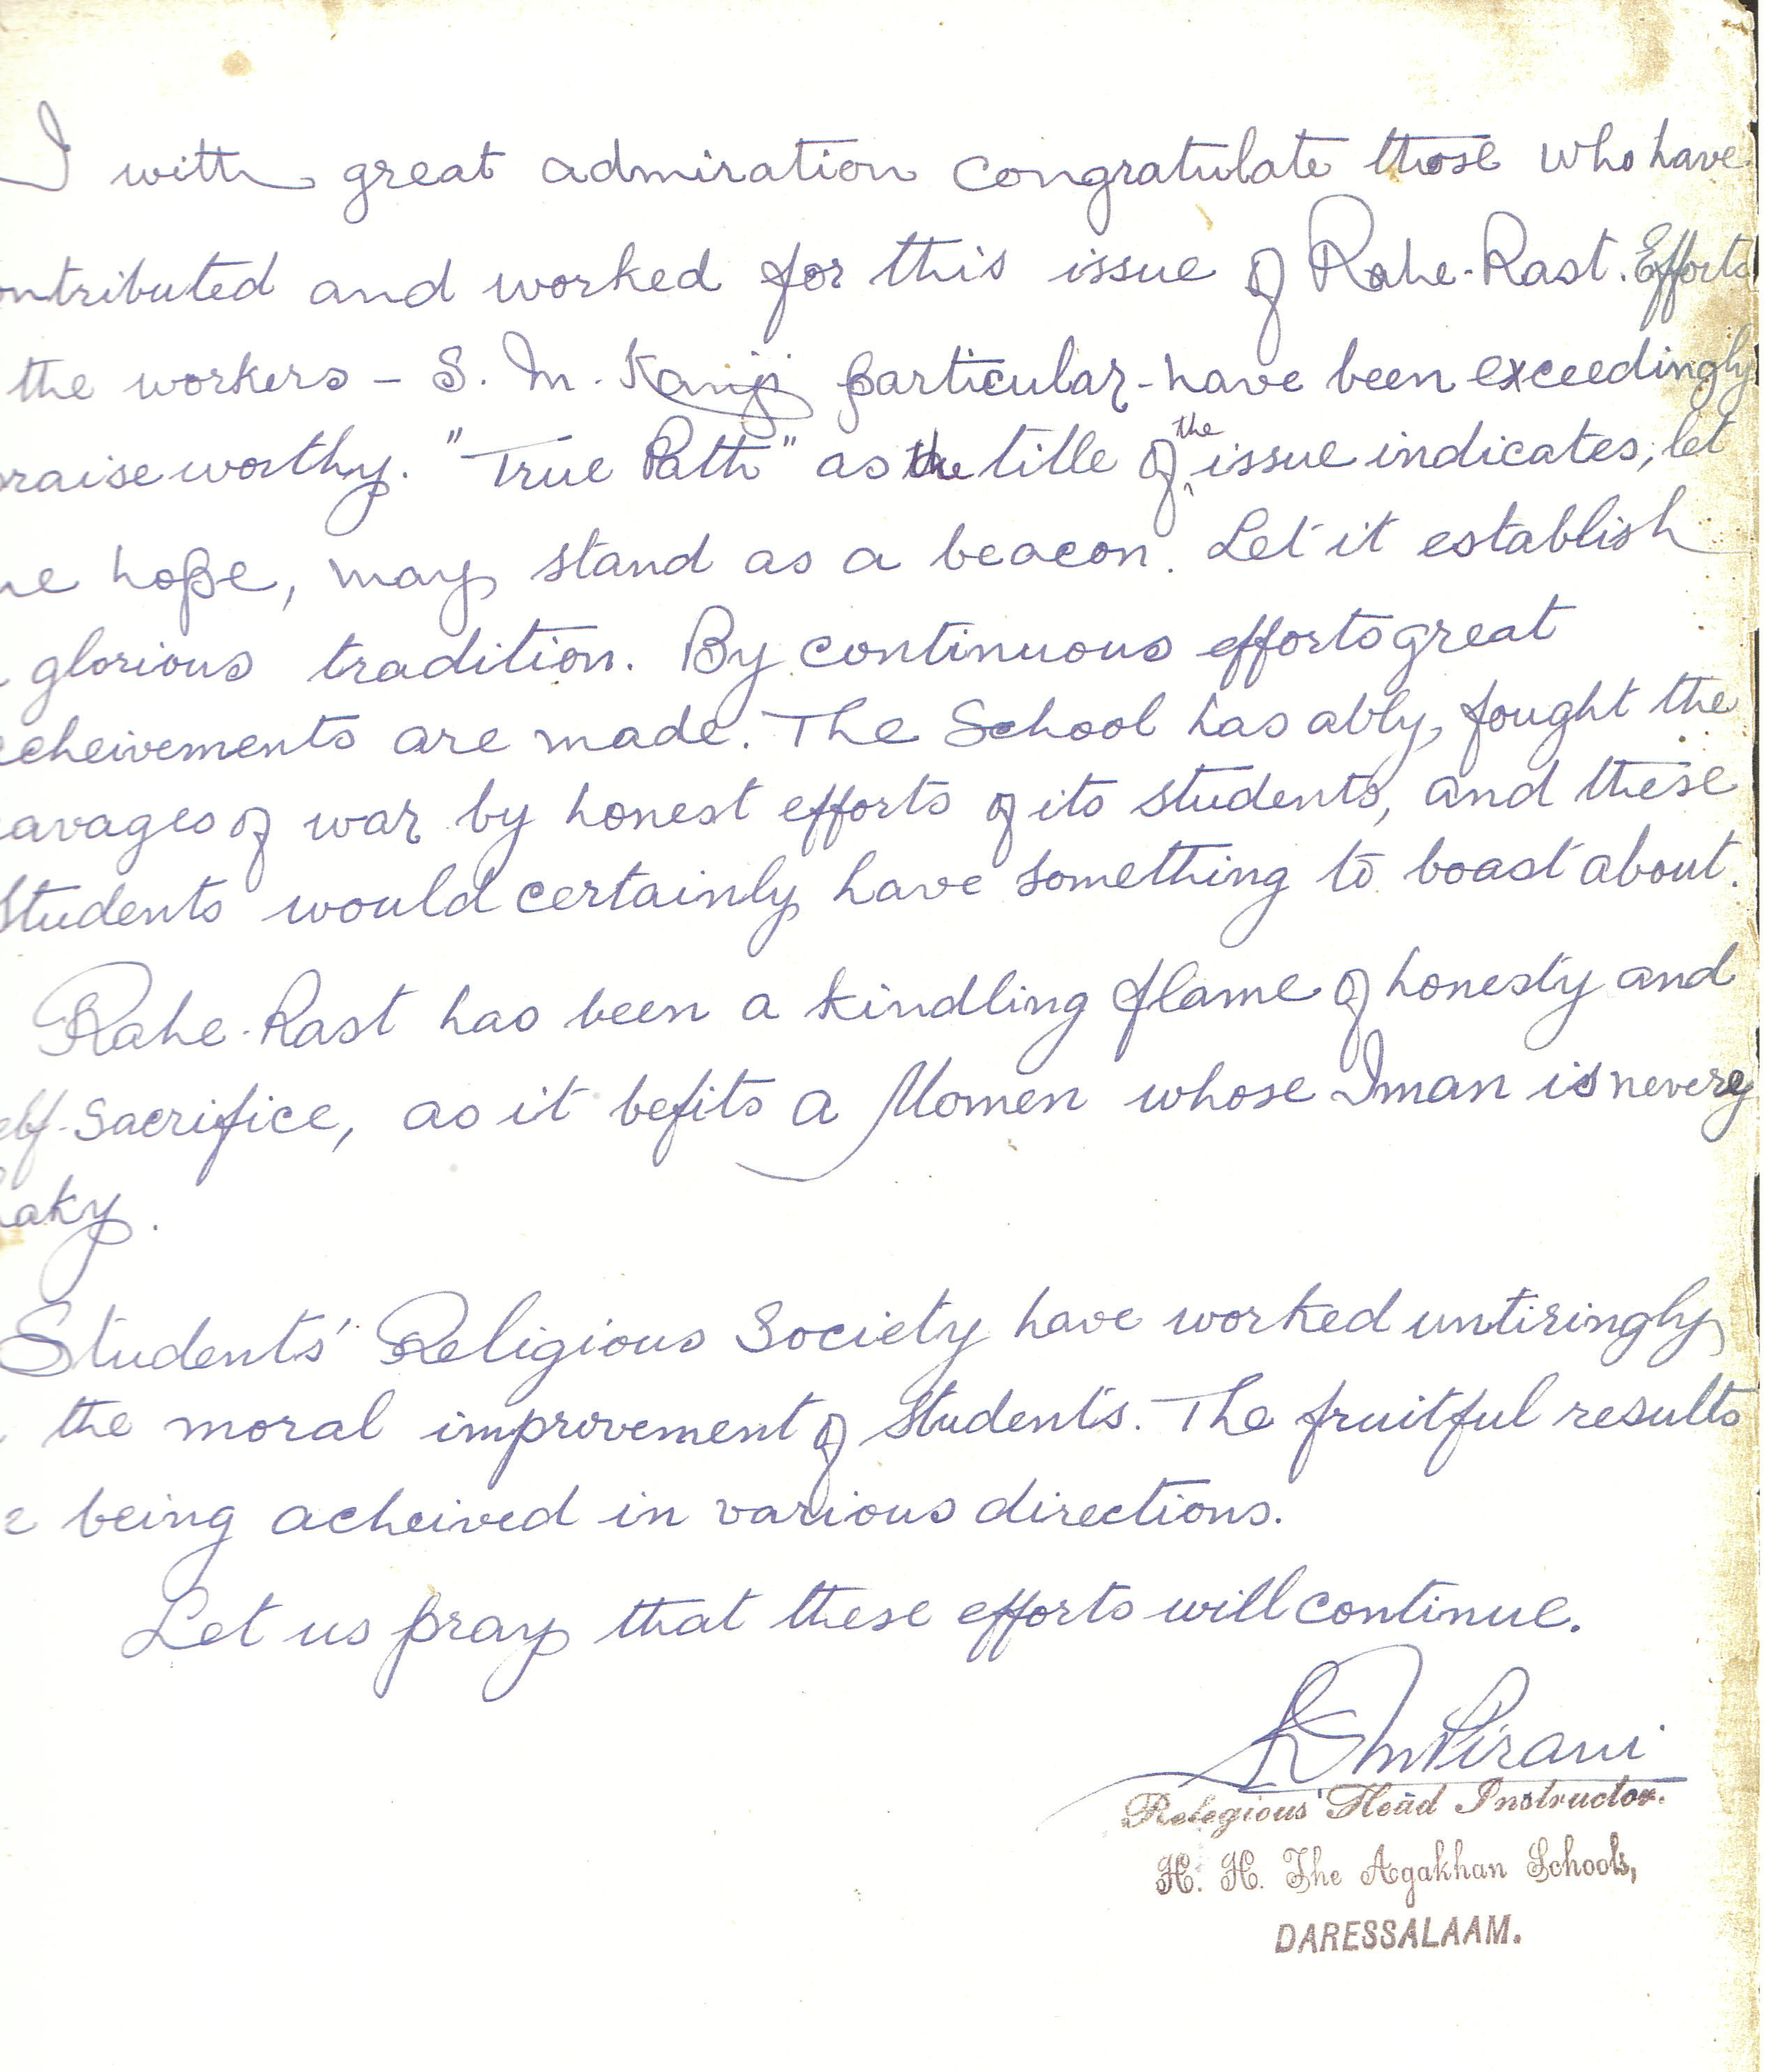 I with great admiration congratulate those who have
ontributed and worked for this issue of Rahe-Rast. Efforts
the workers - S. M. Kanji particular - have been exceedingly
raise worthy. "True Path" as the title of the issue indicates, let
me hope, may stand as a beacon. Let it establish
glorious tradition. By continuous efforts great
cheivements are made. The School has ably fought the
avages of war by honest efforts of its students, and these
Students would certainly have something to boast about.
Rahe-Rast has been a kindling flame of honesty and
elf-Sacrifice, as it befits a Momen whose Iman is never
aky.
Students' Religious Society have worked untiringly
the moral improvement of Students. The fruitful results
e being acheived in various directions.
Let us pray that these efforts will continue.
Pirani
Relegious Head Instructor.
H. H. The Agakhan Schools,
DARESSALAAM.